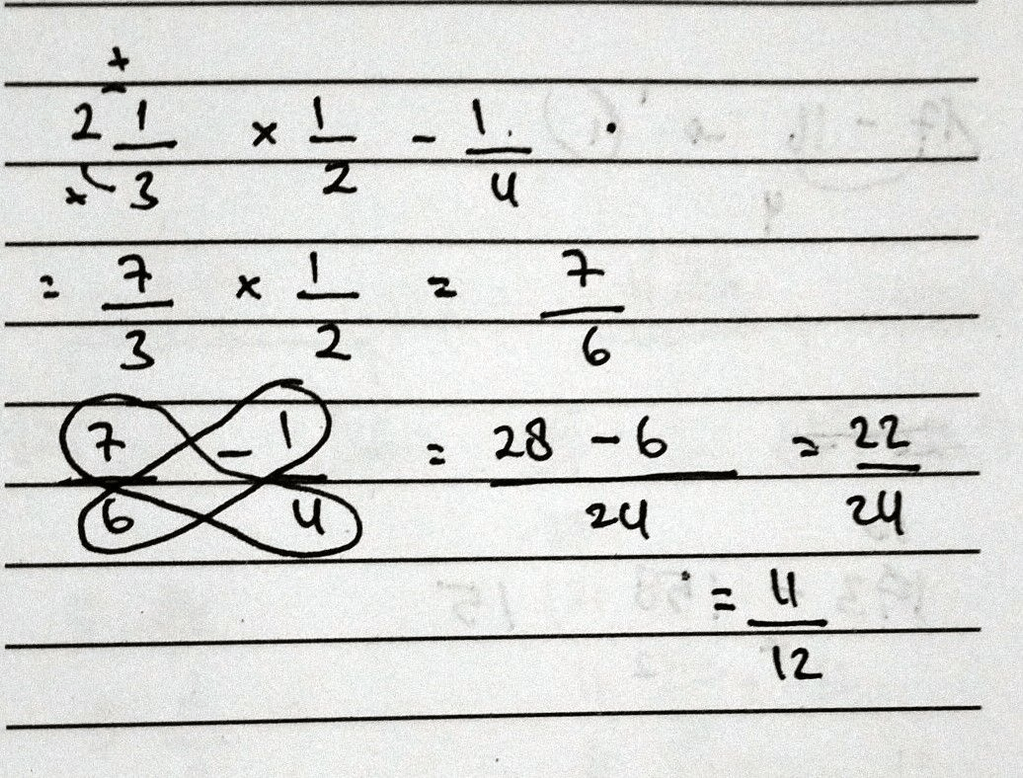 2 1/3 × 1/2 - 1/4
= 7/3 × 1/2 = 7/6
7/6 - 1/4 = (28 - 6)/24 = 22/24
= 11/12